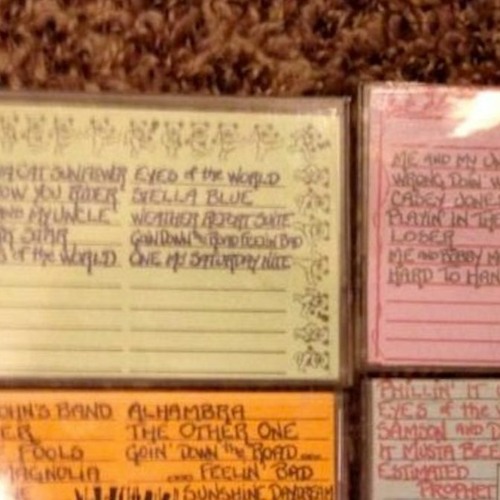 CAT SUNFLOWER EYES of the WORLD
OW YOU RIDER STELLA BLUE
AND MY UNCLE WEATHER REPORT SUITE
STAR GOIN DOWN the ROAD FEELIN BAD
S of the WORLD ONE MO SATURDAY NITE
ME AND MY U
WRONG DOIN'
CASEY JONE
PLAYIN IN THE
LOSER
ME AND BOBBY M
HARD TO HAN
OHN'S BAND ALHAMBRA
ER THE OTHER ONE
FOOLS GOIN' DOWN the ROAD....
MAGNOLIA .... FEELIN' BAD
SUNSHINE DAYDREAM
PHILLIN' IT
EYES of the
SAMSON AND D
IT MUSTA BEE
ESTIMATED
PROPHET